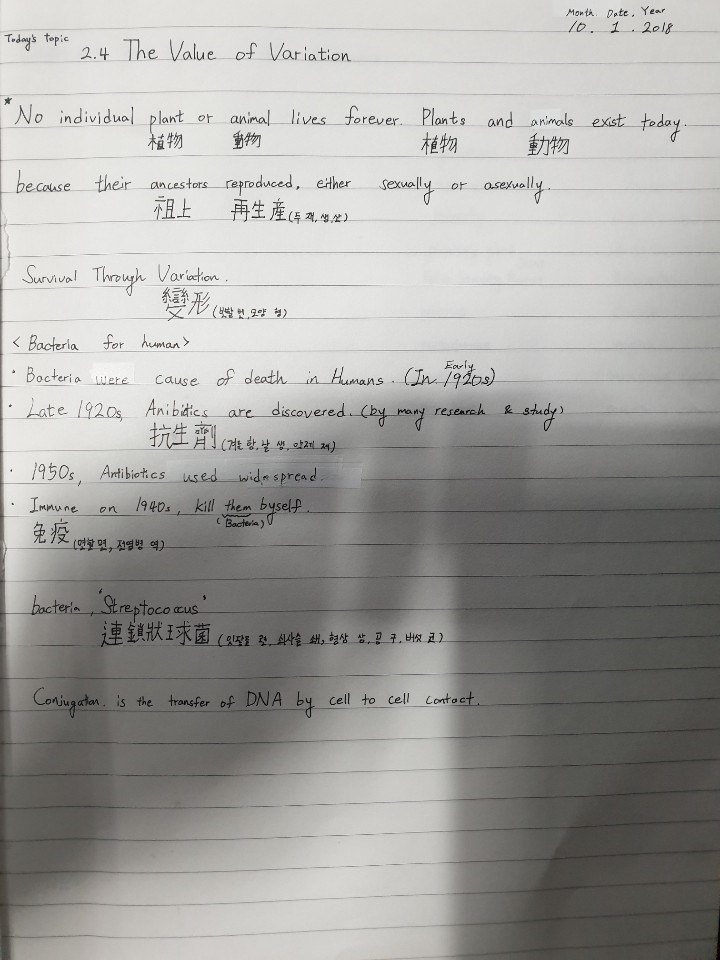 Month. Date. Year
10. 1. 2018
Today's topic
2.4 The Value of Variation
*No individual plant or animal lives forever. Plants and animals exist today.
植物 動物 植物 動物
because their ancestors reproduced, either sexually or asexually.
祖上 再生産 (두 재, 생, 산)
Survival Through Variation.
變形 (변할 변, 모양 형)
< Bacteria for human>
· Bacteria were cause of death in Humans. (In Early 1920s)
· Late 1920s, Anibiotics are discovered. (by many research & study)
抗生劑 (겨룰 항, 날 생, 약제 제)
· 1950s, Antibiotics used widespread
· Immune on 1940s, kill them byself.
(Bacteria)
免疫 (면할 면, 전염병 역)
bacteria, "Streptococcus"
連鎖狀球菌 (잇닿을 련, 쇠사슬 쇄, 형상 상, 공 구, 버섯 균)
Conjugation. is the transfer of DNA by cell to cell contact.